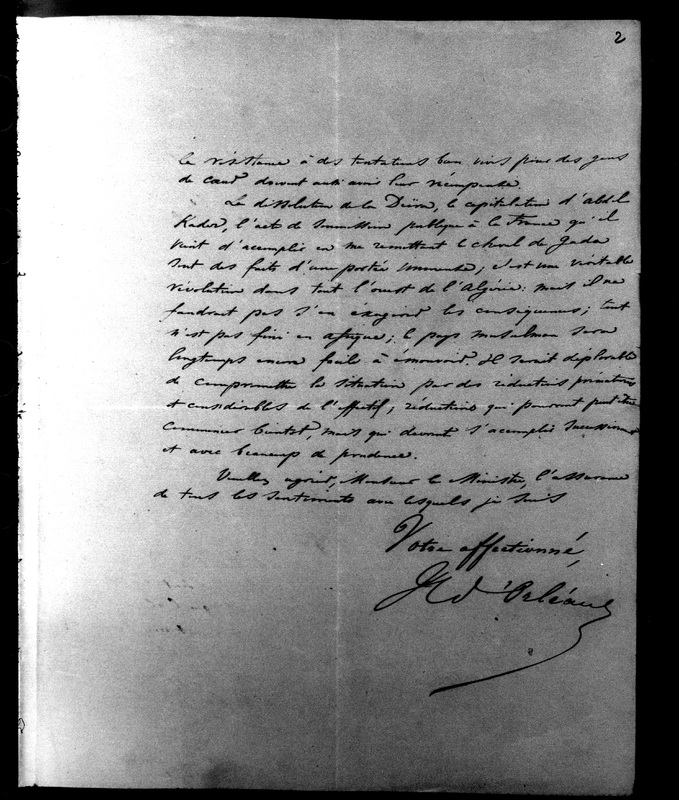 2
la résistance à des tentations bien vives pour des gens
de cœur doivent aussi avoir leur récompense.
La dissolution de la Deïra, la capitulation d'Abd-el
Kader, l'acte de soumission publique à la France qu'il
vient d'accomplir en me remettant le cheval de Gada
sont des faits d'une portée immense; c'est une véritable
révolution dans tout l'ouest de l'Algérie: mais il ne
faudrait pas s'en exagérer les conséquences; tout
n'est pas fini en afrique; le pays musulman sera
longtemps encore facile à émouvoir. Il serait déplorable
de compromettre la situation par des réductions prématurées
et considérables de l'effectif; réductions qui pourront peut être
commencer bientôt, mais qui devront s'accomplir successivement
et avec beaucoup de prudence.
Veuillez agréer, Monsieur le Ministre, l'assurance
de tous les sentiments avec lesquels je suis
Votre affectionné,
H d'Orléans